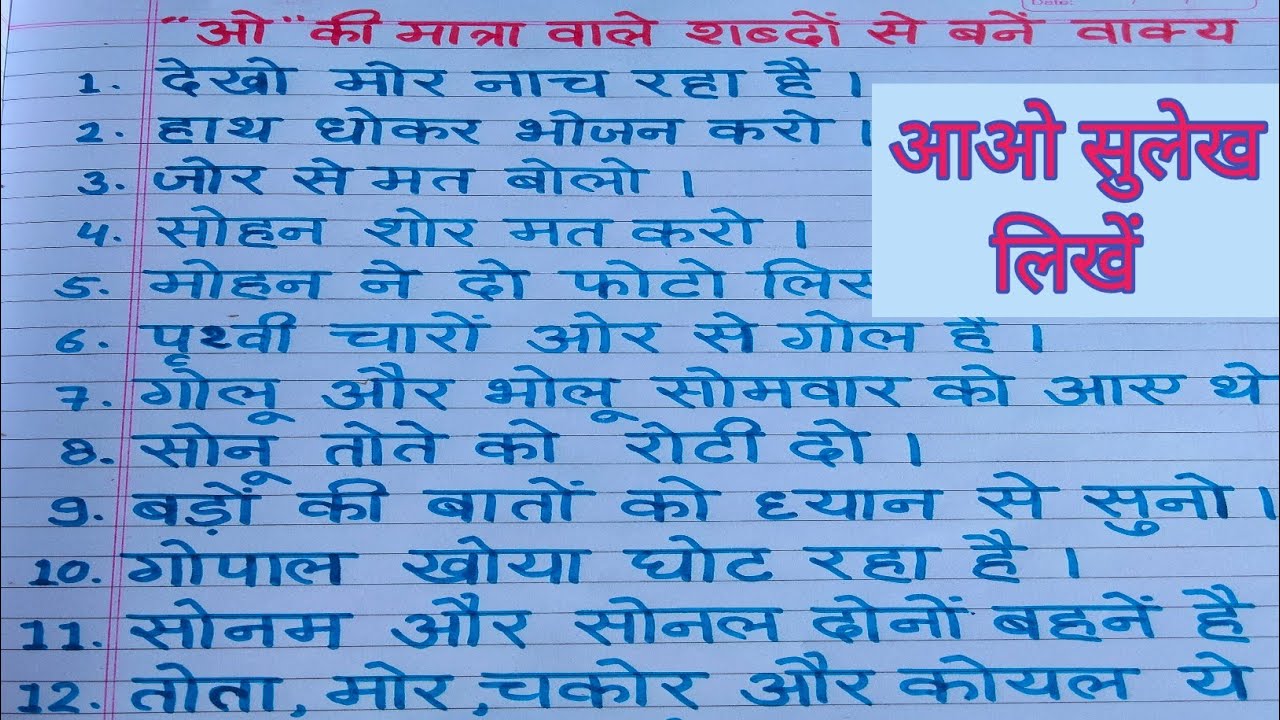 “ओ” की मात्रा वाले शब्दों से बनें वाक्य
1. देखो मोर नाच रहा है ।
2. हाथ धोकर भोजन करो ।
3. जोर से मत बोलो ।
4. सोहन शोर मत करो ।
5. मोहन ने दो फोटो
6. पृथ्वी चारों ओर से गोल है ।
7. गोलू और भोलू सोमवार को आए थे
8. सोनू तोते को रोटी दो ।
9. बड़ों की बातों को ध्यान से सुनो ।
10. गोपाल खोया घोट रहा है ।
11. सोनम और सोनल दोनों बहनें है
12. तोता, मोर, चकोर और कोयल ये
आओ सुलेख
लिखें